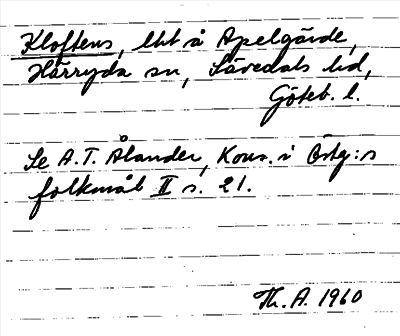 Kloftens, lht å Apelgärde,
Härryda sn, Sävedals hd,
Göteb. l.
Se A.T. Ålander, Kons. i Östg:s
folkmål II s. 21.
Th. A. 1960